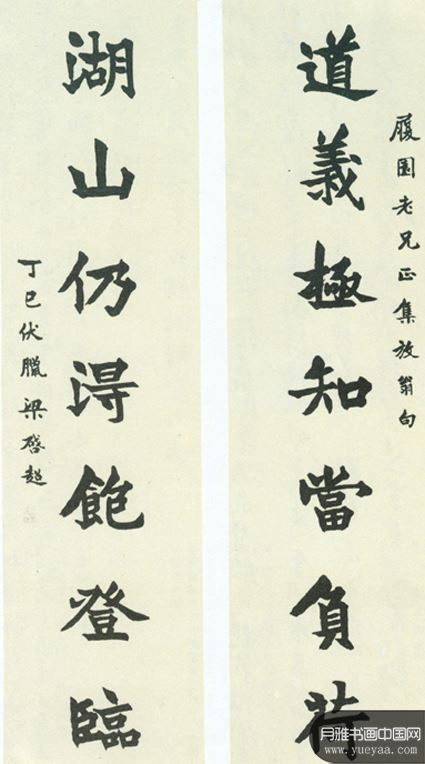 履園老兄正集放翁句
道義極知當負荷
湖山仍得飽登臨
丁巳伏臘梁啓超
月雅书画中国网
www.yueyaa.com